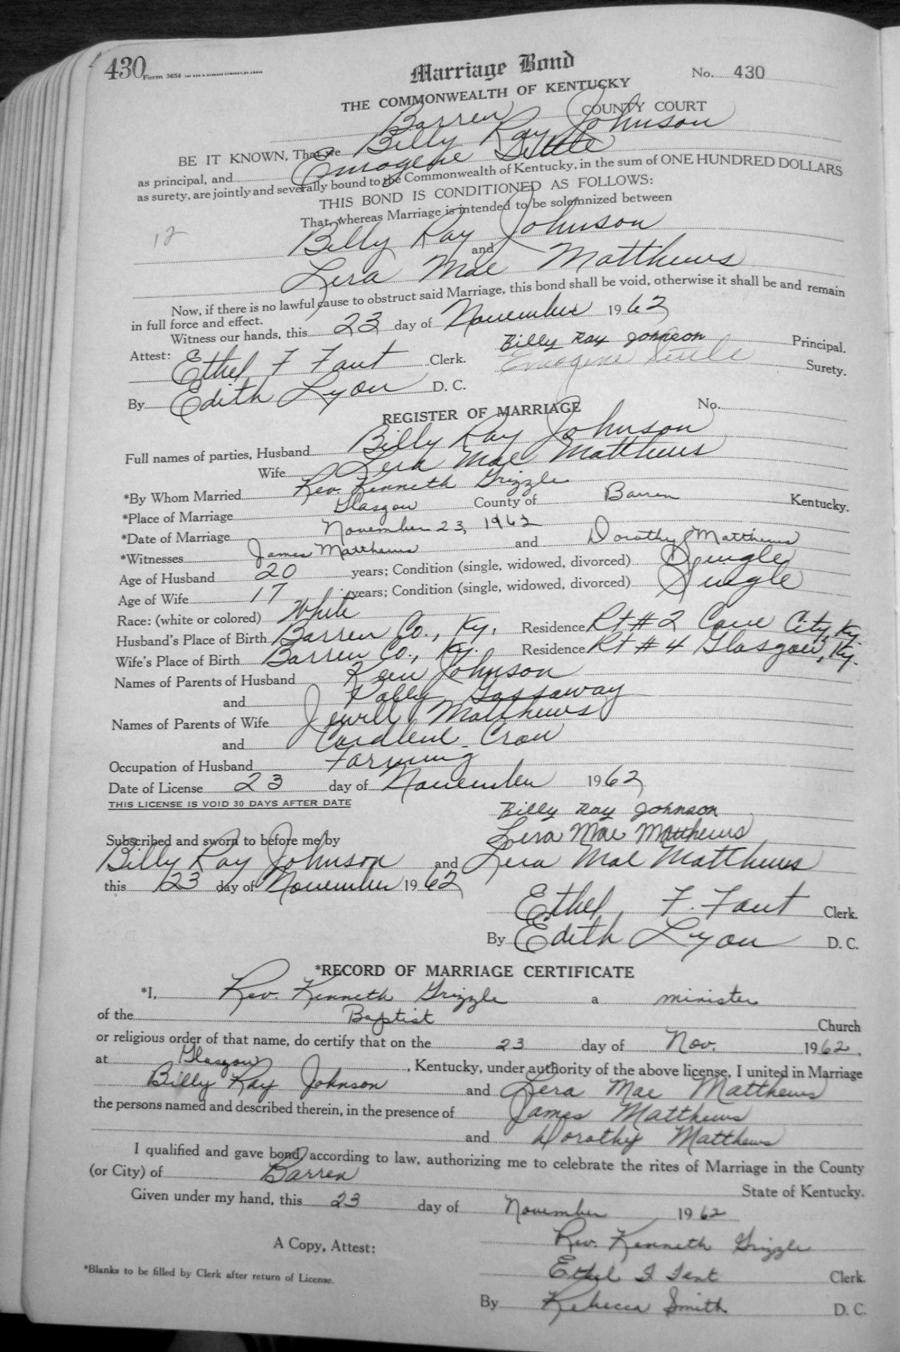 430 Form 365d
Marriage Bond
No. 430
THE COMMONWEALTH OF KENTUCKY
Barren COUNTY COURT
BE IT KNOWN, That we Billy Ray Johnson
as principal, and Emogene
as surety, are jointly and severally bound to the Commonwealth of Kentucky, in the sum of ONE HUNDRED DOLLARS
THIS BOND IS CONDITIONED AS FOLLOWS:
That, whereas Marriage is intended to be solemnized between
12
Billy Ray Johnson
and
Lera Mae Matthews
Now, if there is no lawful cause to obstruct said Marriage, this bond shall be void, otherwise it shall be and remain
in full force and effect.
Witness our hands, this 23 day of November 1962
Billy Ray Johnson Principal.
Attest: Ethel F Clerk. Emogene Surety.
By Edith Lyon D. C.
REGISTER OF MARRIAGE No.
Full names of parties, Husband Billy Ray Johnson
Wife Lera Mae Matthews
*By Whom Married Rev. Kenneth Grizzle
*Place of Marriage Glasgow County of Barren Kentucky.
*Date of Marriage November 23, 1962
*Witnesses James Matthews and Dorothy Matthews
Age of Husband 20 years; Condition (single, widowed, divorced) Single
Age of Wife 17 years; Condition (single, widowed, divorced) Single
Race: (white or colored) White
Husband's Place of Birth Barren Co., Ky. Residence Rt #2 Cave City, Ky.
Wife's Place of Birth Barren Co., Ky. Residence Rt #4 Glasgow, Ky.
Names of Parents of Husband Johnson
and Gassaway
Names of Parents of Wife Jewell Matthews
and Crow
Occupation of Husband Farming
Date of License 23 day of November 1962
THIS LICENSE IS VOID 30 DAYS AFTER DATE
Billy Ray Johnson
Lera Mae Matthews
Subscribed and sworn to before me by
Billy Ray Johnson and Lera Mae Matthews
this 23 day of November 1962
Ethel F. Clerk.
By Edith Lyon D. C.
*RECORD OF MARRIAGE CERTIFICATE
*I, Rev. Kenneth Grizzle a minister
of the Baptist Church
or religious order of that name, do certify that on the 23 day of Nov. 1962,
at Glasgow, Kentucky, under authority of the above license, I united in Marriage
Billy Ray Johnson and Lera Mae Matthews
the persons named and described therein, in the presence of James Matthews
and Dorothy Matthews
I qualified and gave bond according to law, authorizing me to celebrate the rites of Marriage in the County
(or City) of Barren State of Kentucky.
Given under my hand, this 23 day of November 1962
Rev. Kenneth Grizzle
A Copy, Attest:
*Blanks to be filled by Clerk after return of License.
Ethel Clerk.
By Rebecca Smith D. C.